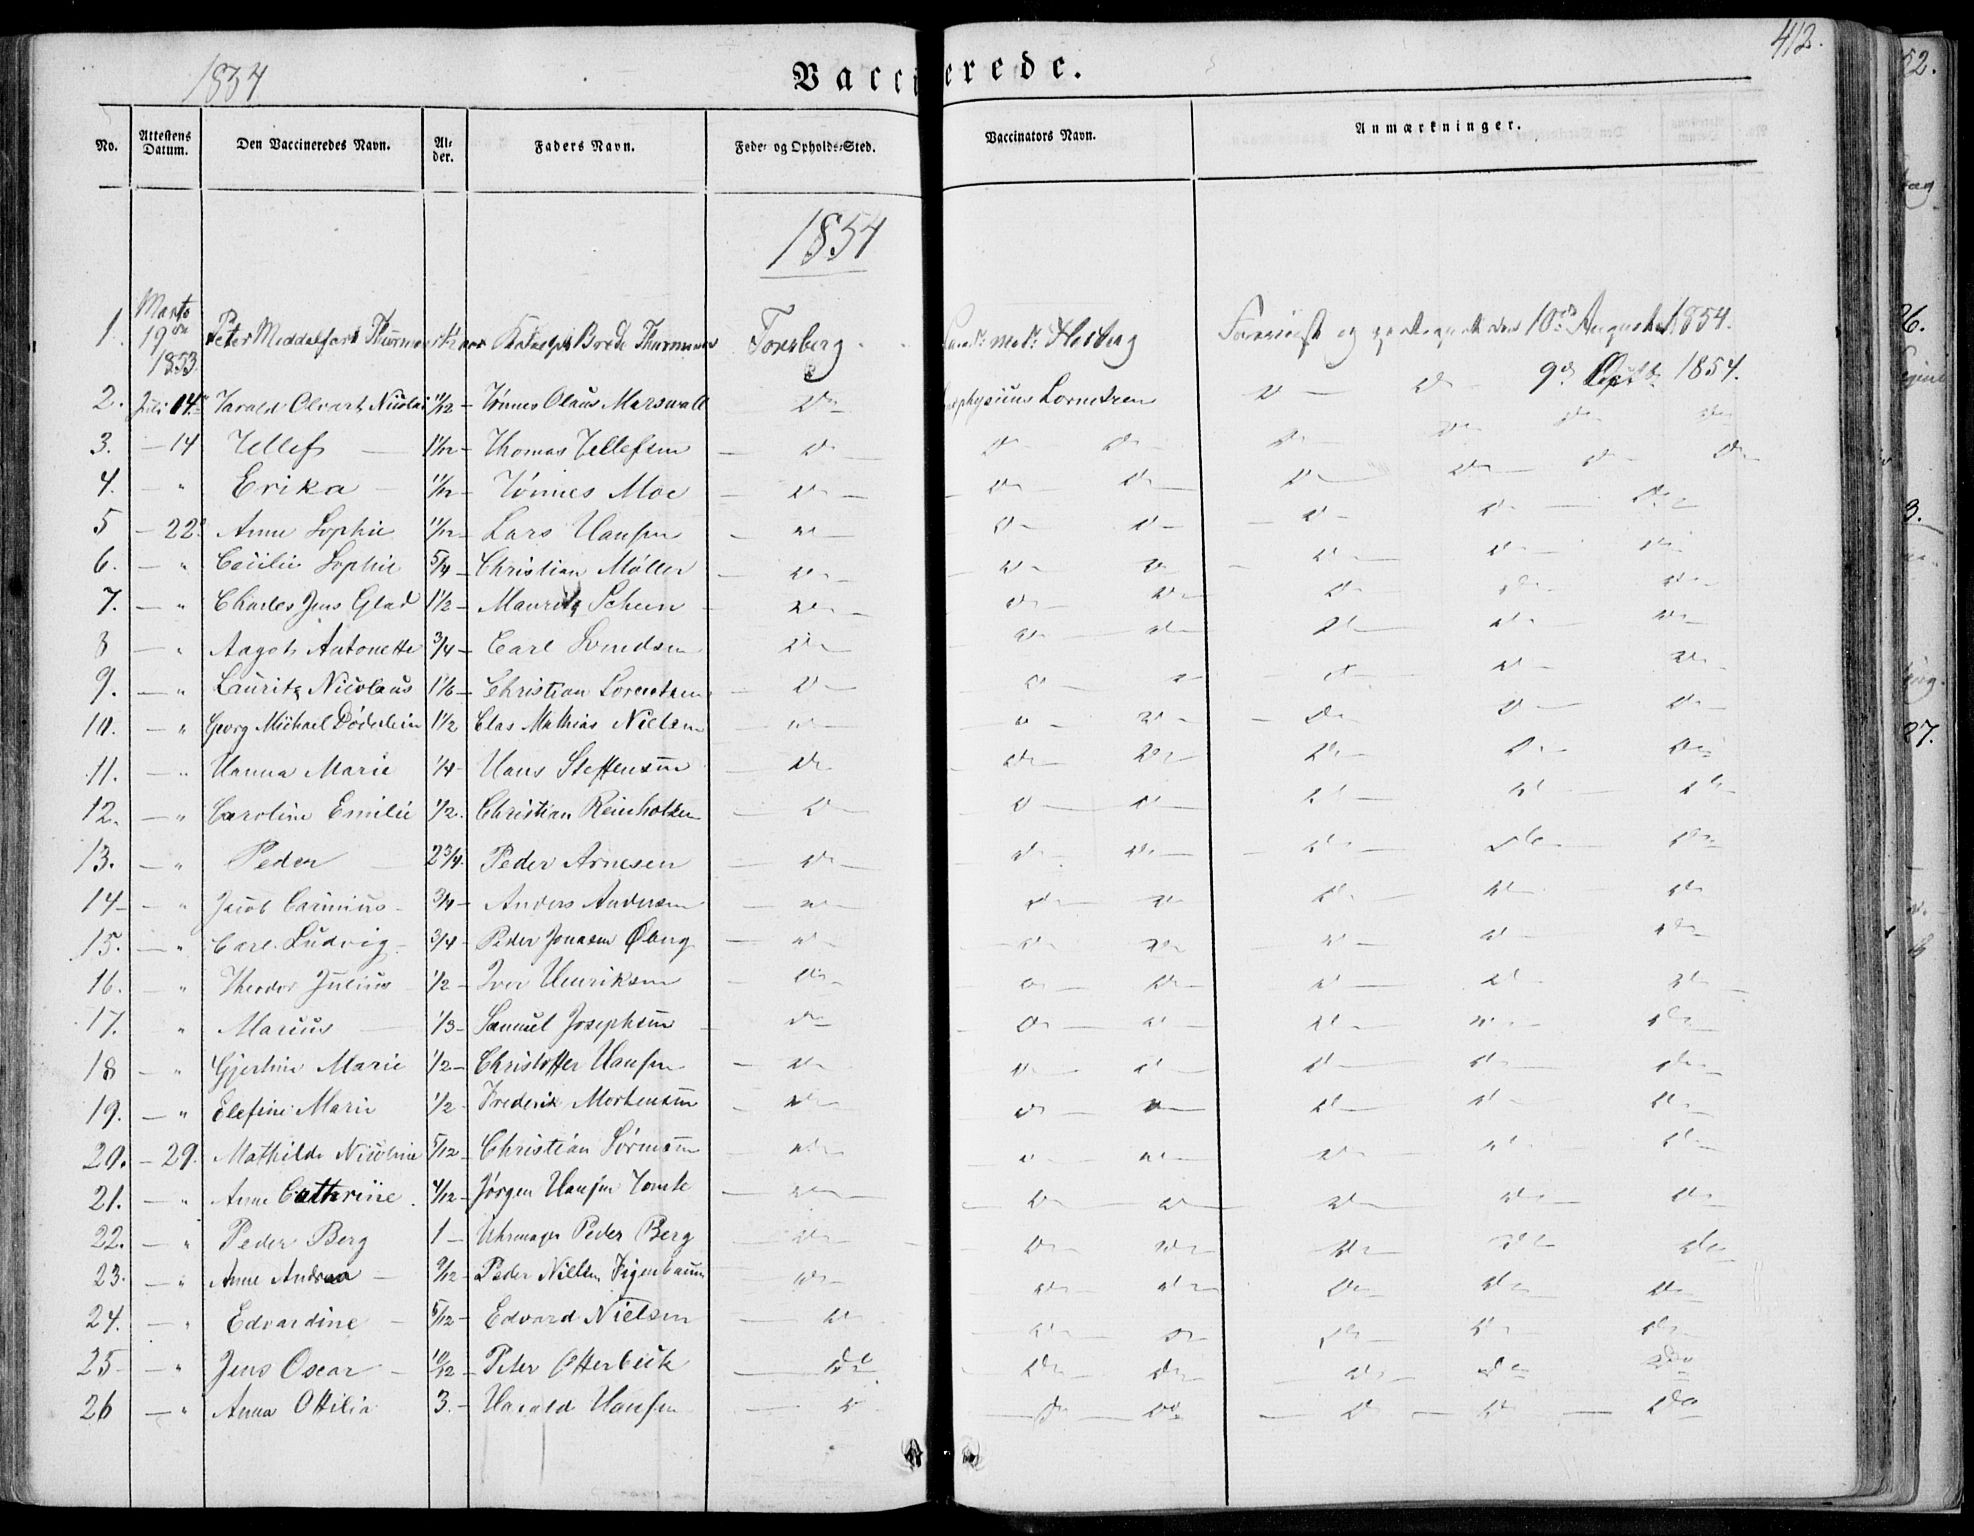 412.
1854
Vaccinerede.
No. Attestens Datum. Den Vaccineredes Navn. Al-der. Faders Navn. Føde- og Opholds-Sted. Vaccinators Navn. Anmærkninger.
1854
1. Marts 19de 1853 Peter Middelfart Brede Thurmann Tønsberg Cand. med. Heiberg Foreviist og 10de August 1854.
2. Juli 14 Harald Olvart Nicolai 11/12 Tønnes Olaus Marswall Do Lorentzen Do Do 9de 1854.
3. – 14 Tellef 11/12 Thomas Tellefsen Do Do Do Do Do Do Do
4. – " Erika 11/12 Tønnes Moe Do Do Do Do Do Do Do
5 – 22 Anne Sophie 11/12 Lars Hansen Do Do Do Do Do Do
6. – " Cecilie Sophie 5/4 Christian Møller Do Do Do Do Do Do
7. – " Charles Jens Glad 1 1/2 Mauritz Scheen Do Do Do Do Do Do
8 – " Aagot Antonette 3/4 Carl Do Do Do Do Do Do
9. – " Lauritz Nicolaus 1 1/6 Christian Lorentzen Do Do Do Do Do Do
10. – " Georg Michael Døderlein 1 1/2 Clas Mathias Nielsen Do Do Do Do Do Do
11. – " Hanna Marie 1/4 Hans Steffensen Do Do Do Do Do Do
12. – " Caroline Emilie 1/2 Christian Reinholtsen Do Do Do Do Do Do
13. – " Peder 2 3/4 Peder Arnesen Do Do Do Do Do Do
14 – " Jacob 3/4 Anders Andersen Do Do Do Do Do Do
15. – " Carl Ludvig 3/4 Peder Jonasen Øberg Do Do Do Do Do Do
16. – " Theodor Julius 1/2 Iver Henriksen Do Do Do Do Do Do
17. " Marius 1/3 Samuel Josephsen Do Do Do Do Do Do
18 – " Gjertine Marie 1/2 Christoffer Hansen Do Do Do Do Do Do
19. – " Elefine Marie 1/2 Frederik Mortensen Do Do Do Do Do Do
20. – 29. Mathilde Nicoline 5/12 Christian Sørensen Do Do Do Do Do Do
21. – " Anne Cathrine 4/12 Jørgen Hansen Do Do Do Do Do Do
22. – " Peder Berg 1 Uhrmager Peder Berg Do Do Do Do Do Do
23. – " Anne Andrea 9/12 Peder Nilsen Figenbaum Do Do Do Do Do Do
24. – " Edvardine 5/12 Edvard Nielsen Do Do Do Do Do Do
25 – " Jens Oscar 10/12 Peter Otterbeck Do Do Do Do Do Do
26 – " Anna Ottilia 3. Harald Hansen Do Do Do Do Do Do